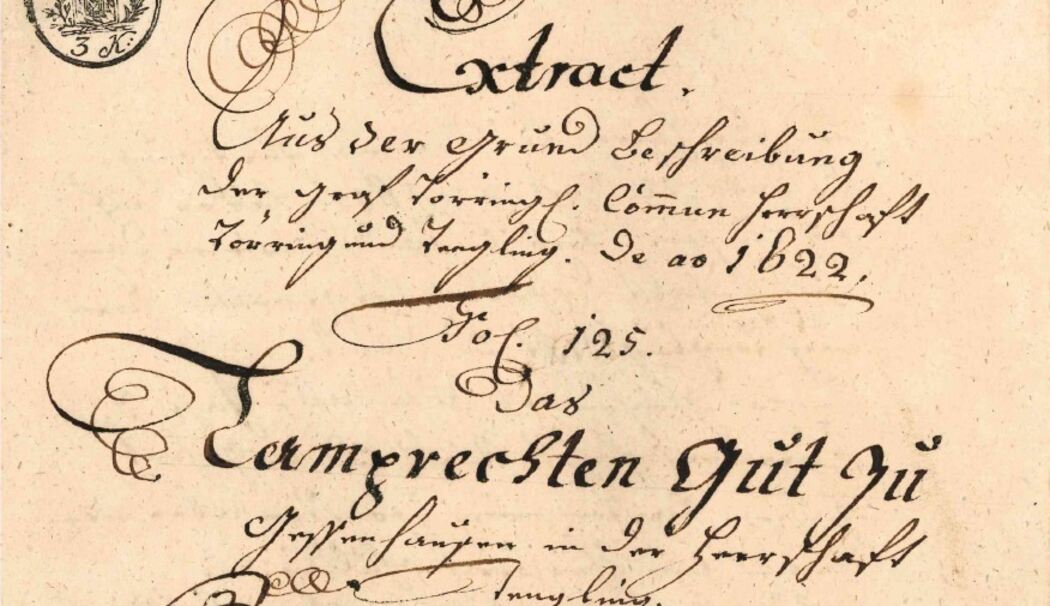 3 K:
Extract.
Aus der Grund Beschreibung
der Graf Törringl. Com̅un Herrschaft
Törring und Tengling. De ao 1622.
Fol. 125.
Das
Lamprechten Gut Zu
Gessenhausen in der Herrschaft
Tengling.